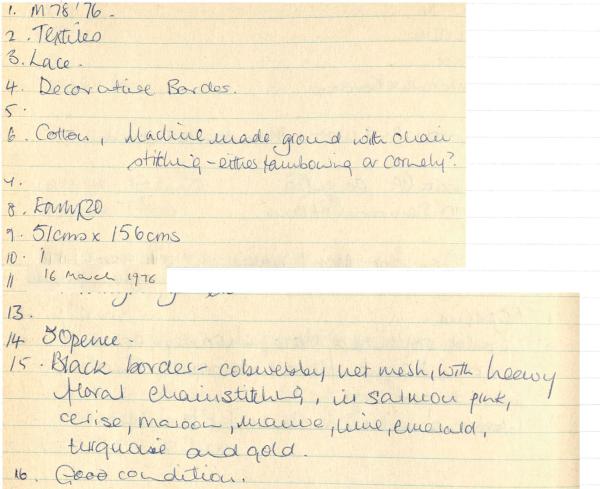 1. M78'76.
2. Textiles
3. Lace.
4. Decorative Border.
5.
6. Cotton, Machine made ground with chain
stitching - either tambowing or cornely?
7.
8. Early C20
9. 51cms x 156cms
10. 1
11 16 March 1976
13.
14 50pence.
15. Black border - cobwebby net mesh, with heavy
floral chainstitching, in salmon pink,
cerise, maroon, mauve, lime, emerald,
turquoise and gold.
16. Good condition.